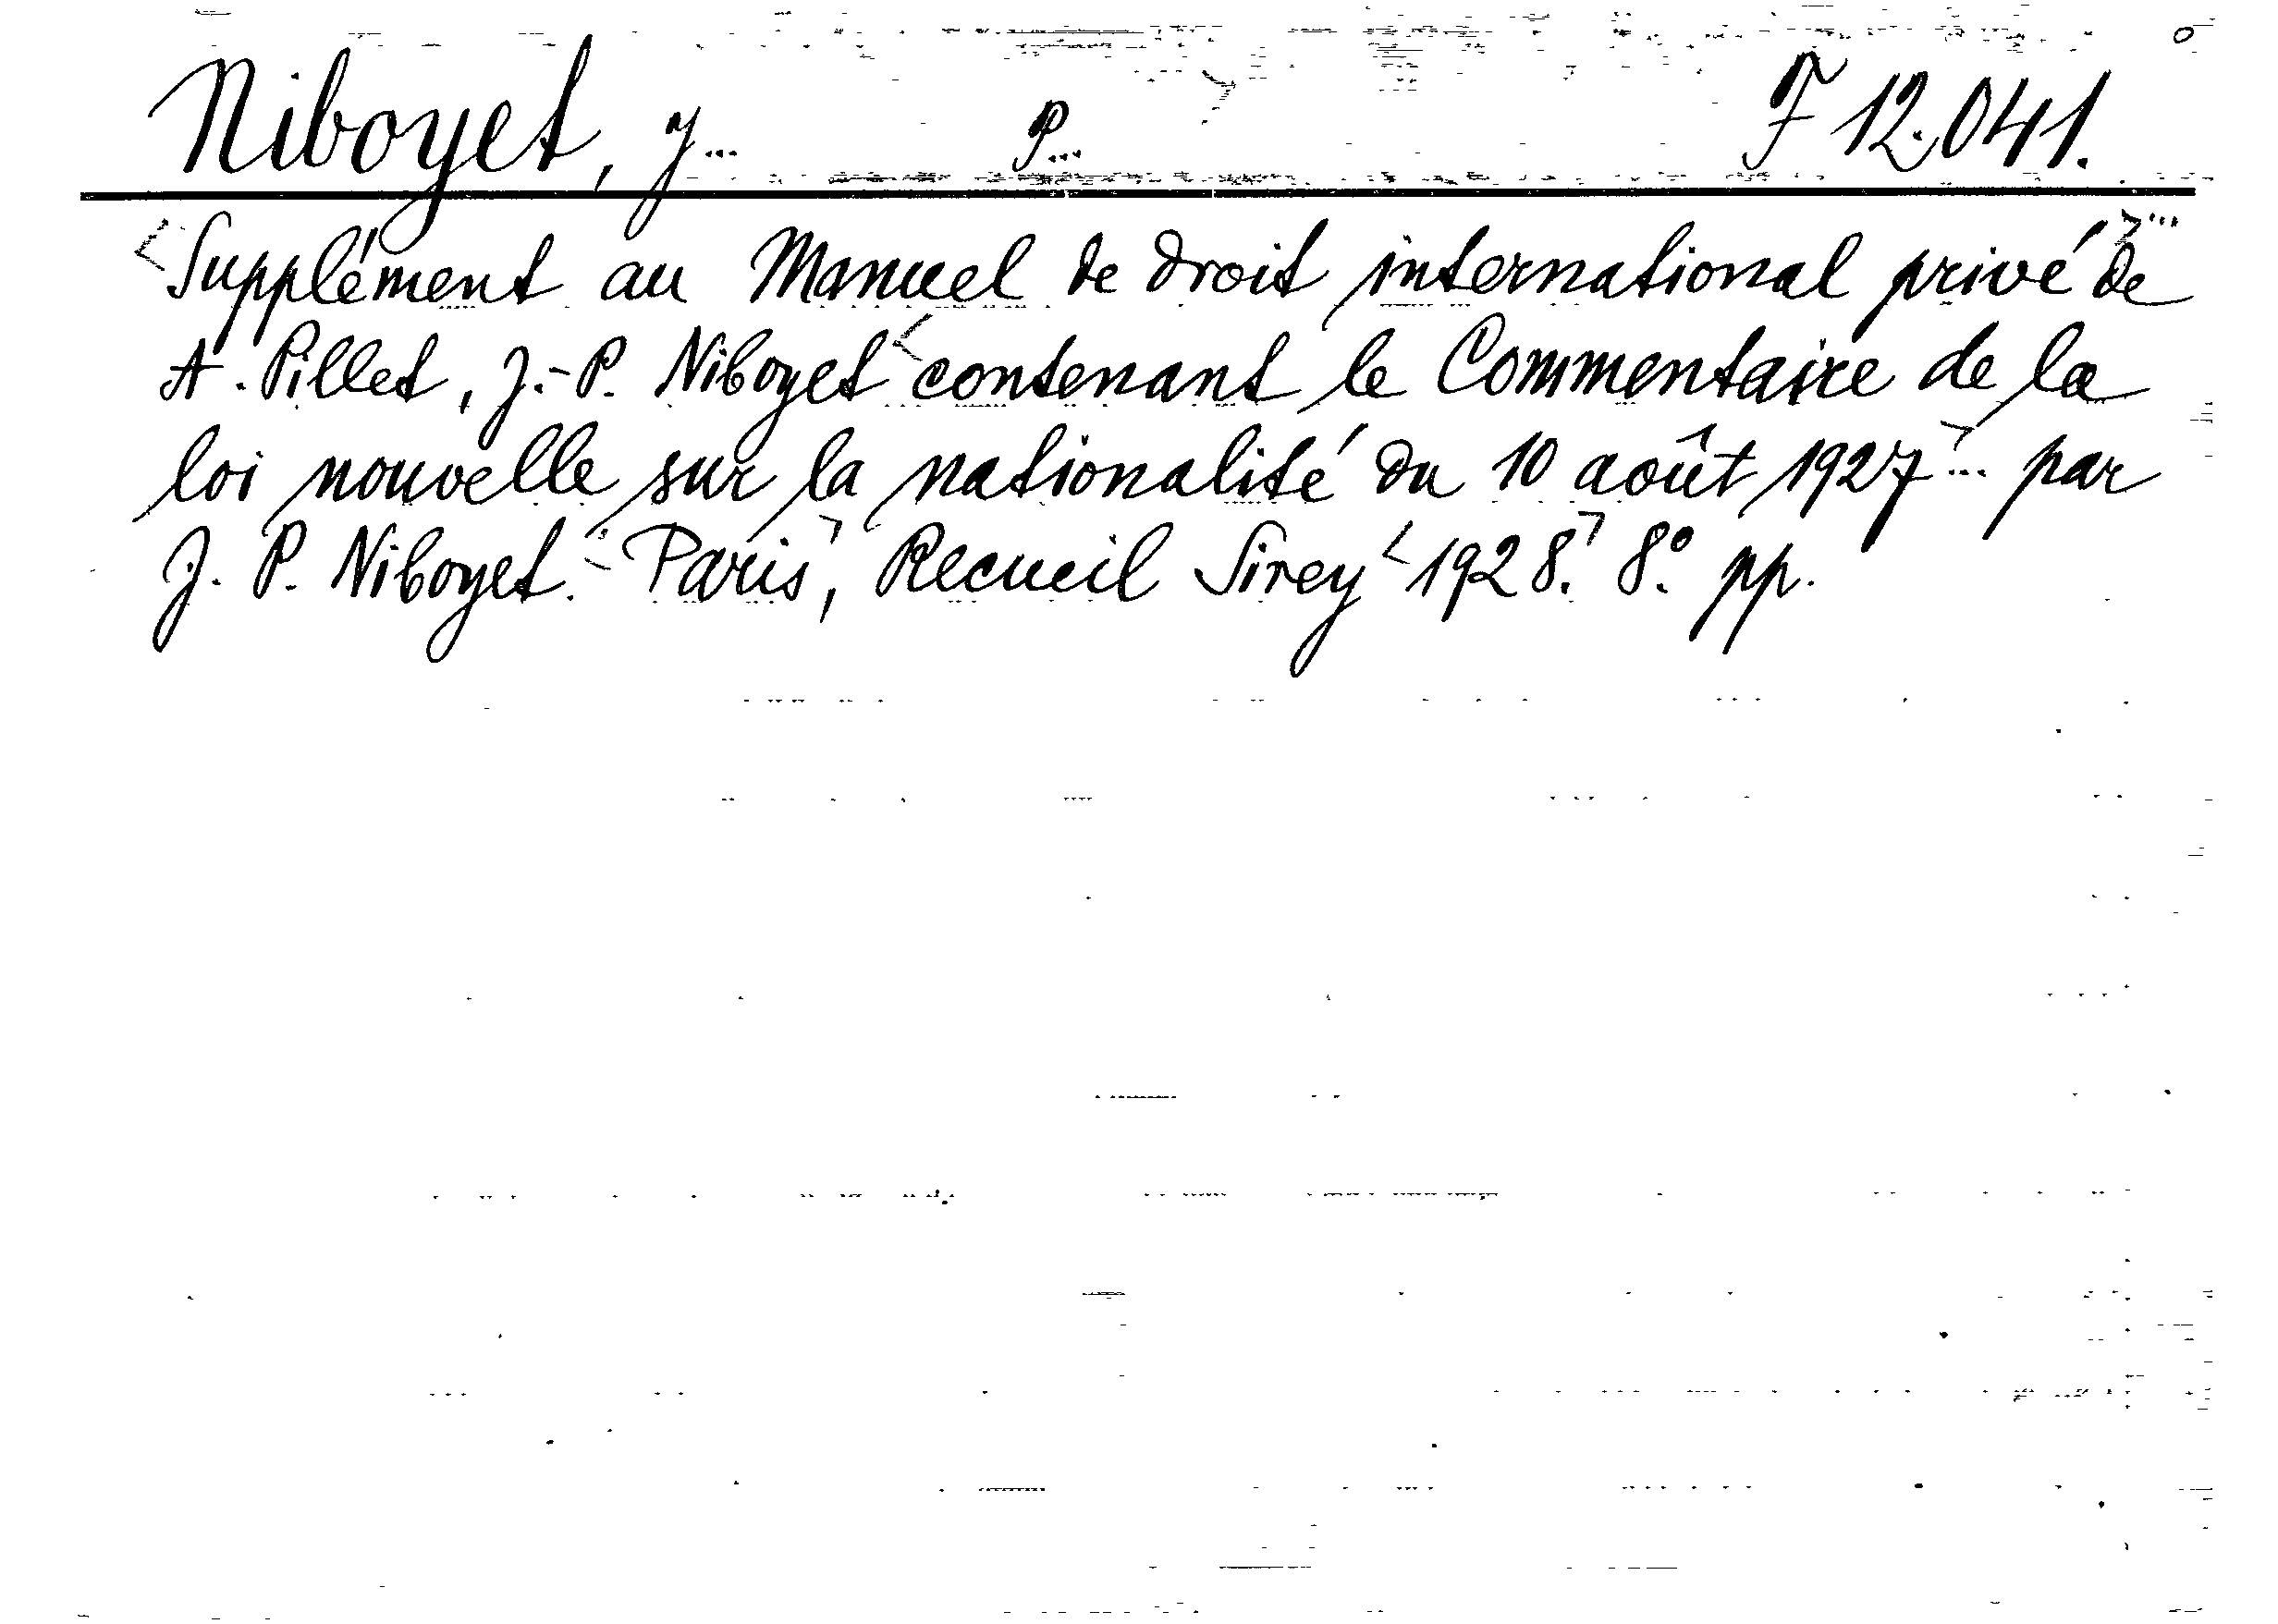 Niboyet, J... P... F 12.041.
Supplément au Manuel de droit international privé de
A. Pillet, J.-P. Niboyet contenant le Commentaire de la
loi nouvelle sur la nationalité du 10 août 1927... par
J. P. Niboyet. - Paris, Recueil Sirey 1928. 8° pp.